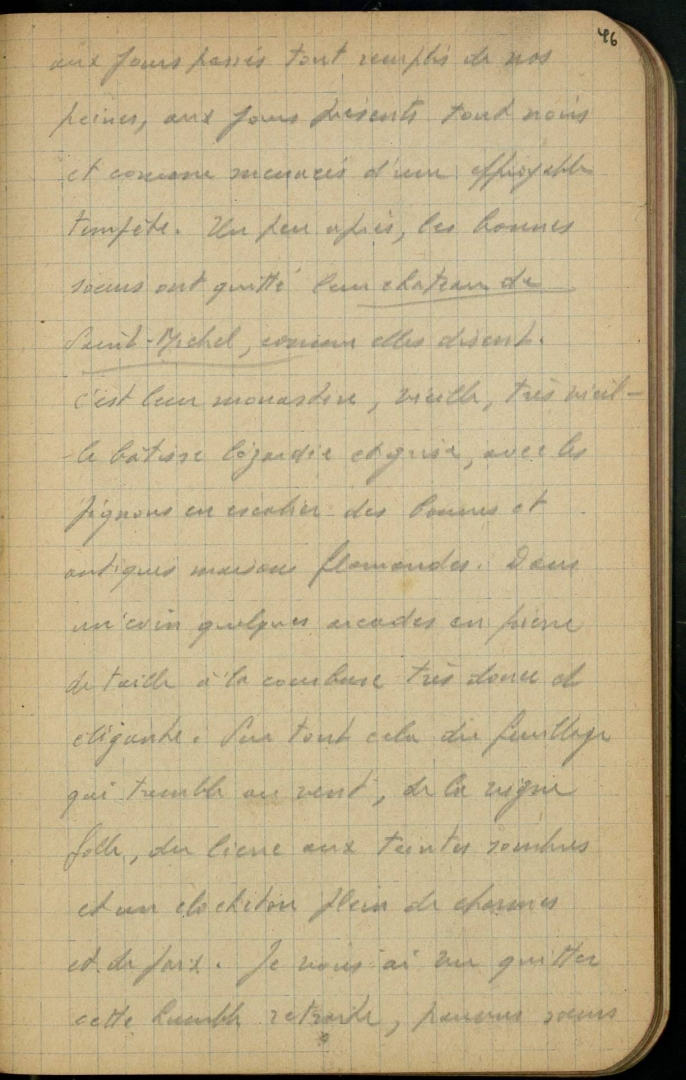 46
aux jours passés tout remplis de nos
peines, aux jours présents tout noirs
et comme menacés d'une effroyable
tempête. Un peu après, les bonnes
sœurs ont quitté leur chateau de
Saint-Michel, comme elles disent.
C'est leur monastère, vieille, très vieil-
-le bâtisse lézardée et grise, avec les
pignons en escalier des bonnes et
antiques maisons flamandes. Dans
un coin quelques arcades en pierre
de taille à la courbure très douce et
élégante. Sur tout cela du feuillage
qui tremble au vent, de la vigne
folle, du lierre aux teintes sombres
et un clocheton plein de charmes
et de paix. Je vous ai vu quitter
cette humble retraite, pauvres sœurs